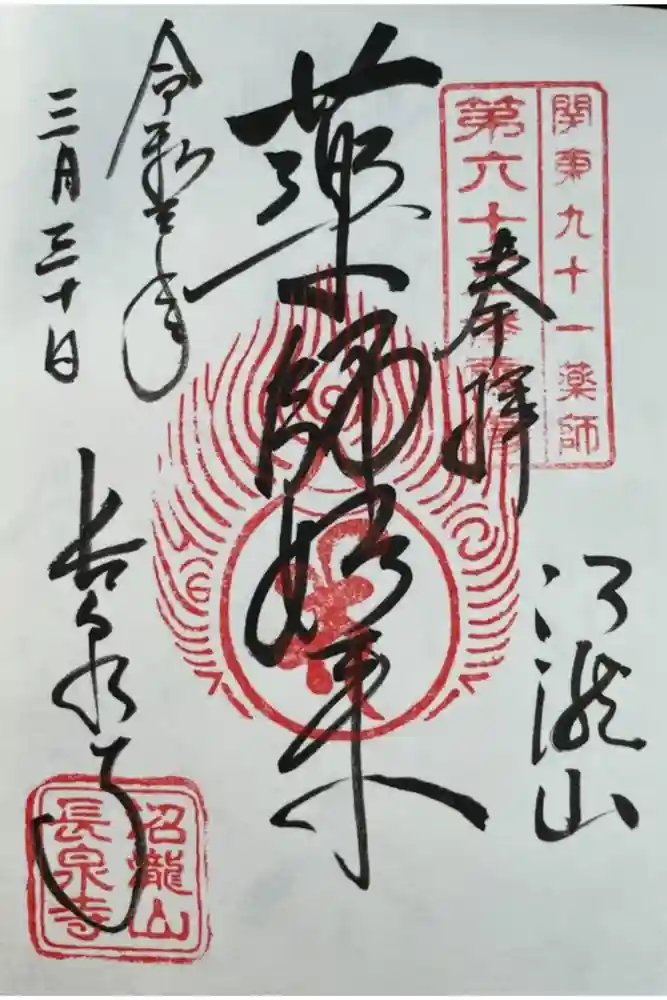 関東九十一薬師
第六十
奉拝
沼瀧山
薬師如来
令和五年
三月三十日
長泉寺
沼瀧山
長泉寺